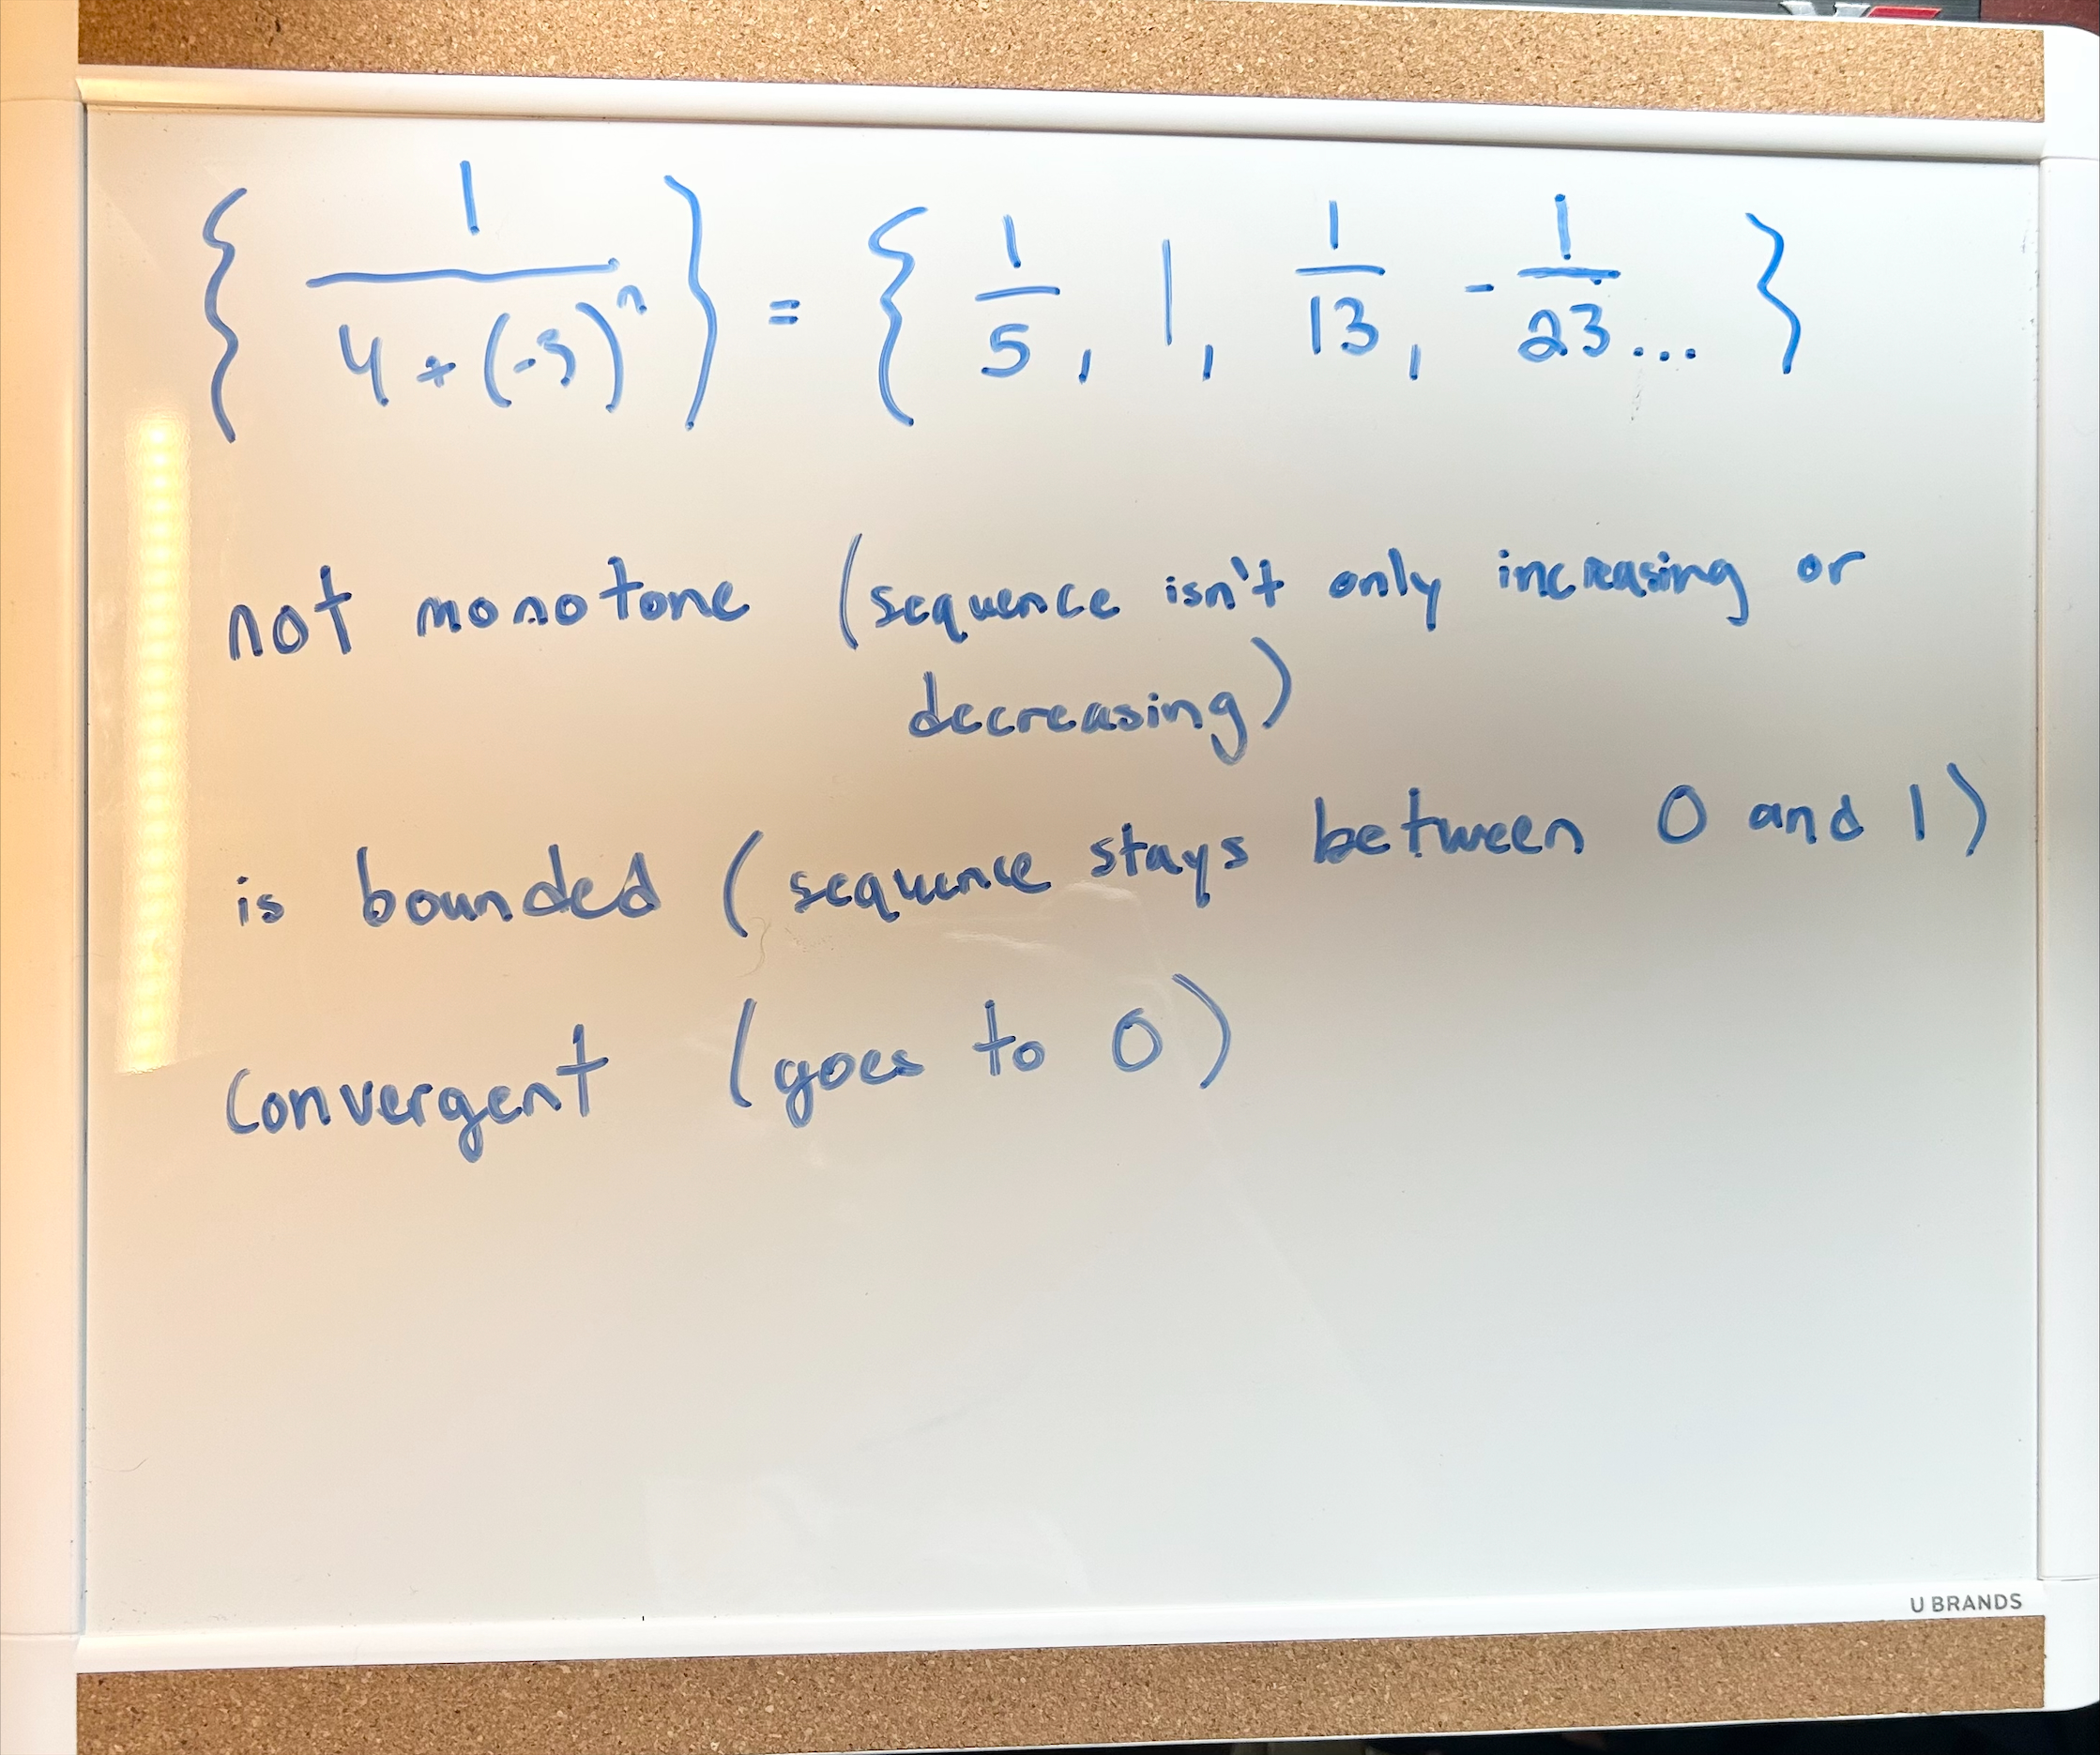 { 1 / (4 + (-3)^n) } = { 1/5, 1, 1/13, - 1/23 ... }
not monotone (sequence isn't only increasing or
decreasing)
is bounded (sequence stays between 0 and 1)
Convergent (goes to 0)
U BRANDS